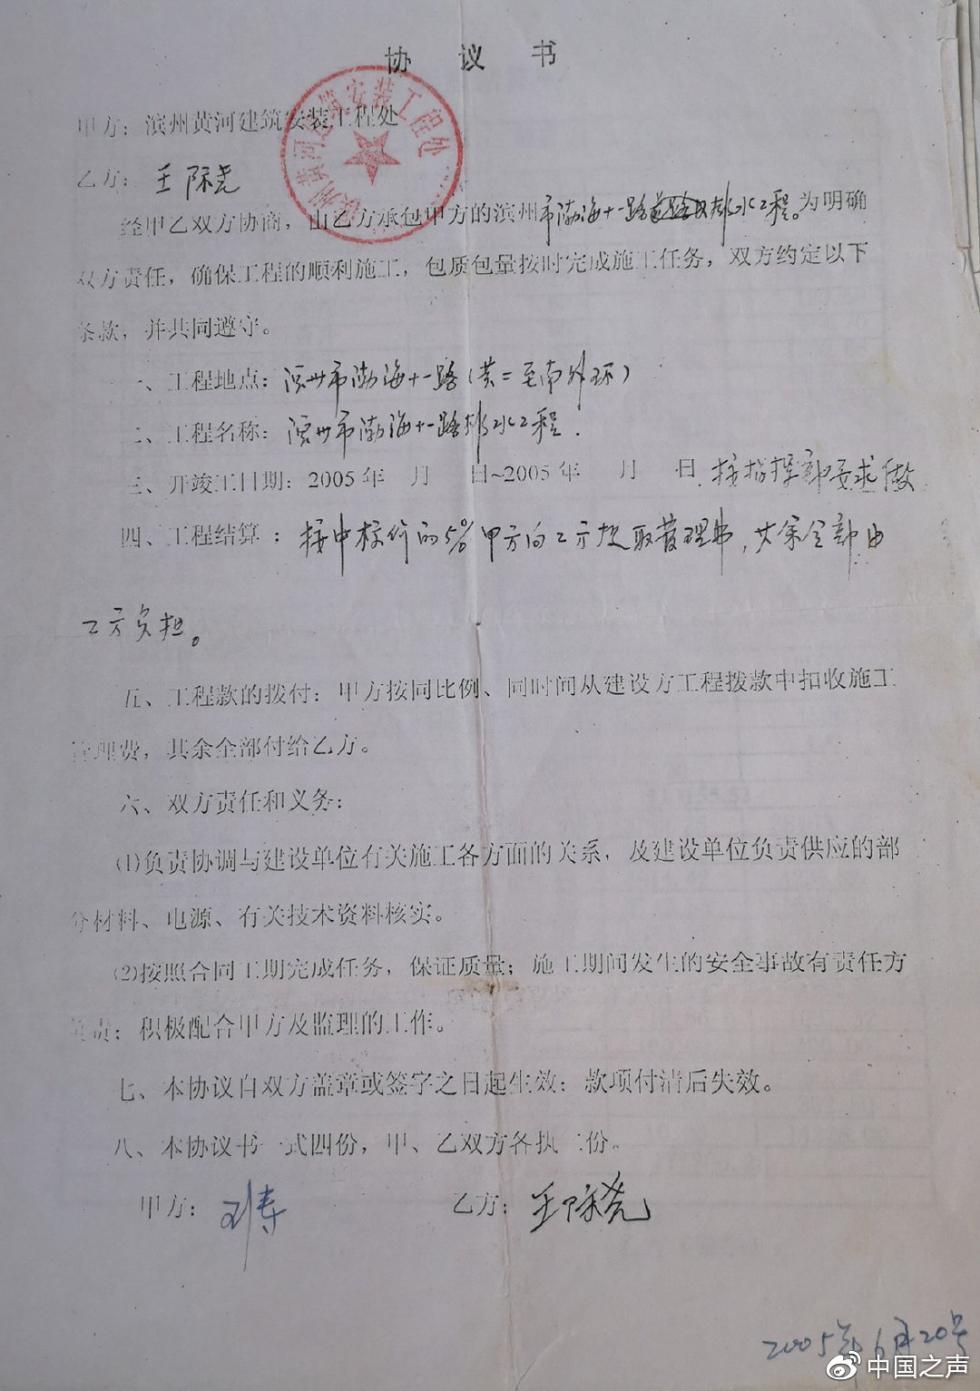 协 议 书
甲方：滨州黄河建筑安装工程处
乙方：王际尧
经甲乙双方协商，由乙方承包甲方的滨州市渤海十一路排水工程。为明确
双方责任，确保工程的顺利施工，包质包量按时完成施工任务，双方约定以下
条款，并共同遵守。
一、工程地点：滨州市渤海十一路（黄二至南外环）
二、工程名称：滨州市渤海十一路排水工程.
三、开竣工日期：2005年 月 日~2005年 月 日 按指挥部要求做
四、工程结算：按中标价的5%甲方向乙方提取管理费，其余全部由
乙方负担。
五、工程款的拨付：甲方按同比例、同时间从建设方工程拨款中扣收施工
管理费，其余全部付给乙方。
六、双方责任和义务：
⑴负责协调与建设单位有关施工各方面的关系，及建设单位负责供应的部
分材料、电源、有关技术资料核实。
⑵按照合同工期完成任务，保证质量；施工期间发生的安全事故有责任方
负责；积极配合甲方及监理的工作。
七、本协议自双方盖章或签字之日起生效；款项付清后失效。
八、本协议书一式四份，甲、乙双方各执二份。
甲方： 乙方：王际尧
2005年6月20号
中国之声